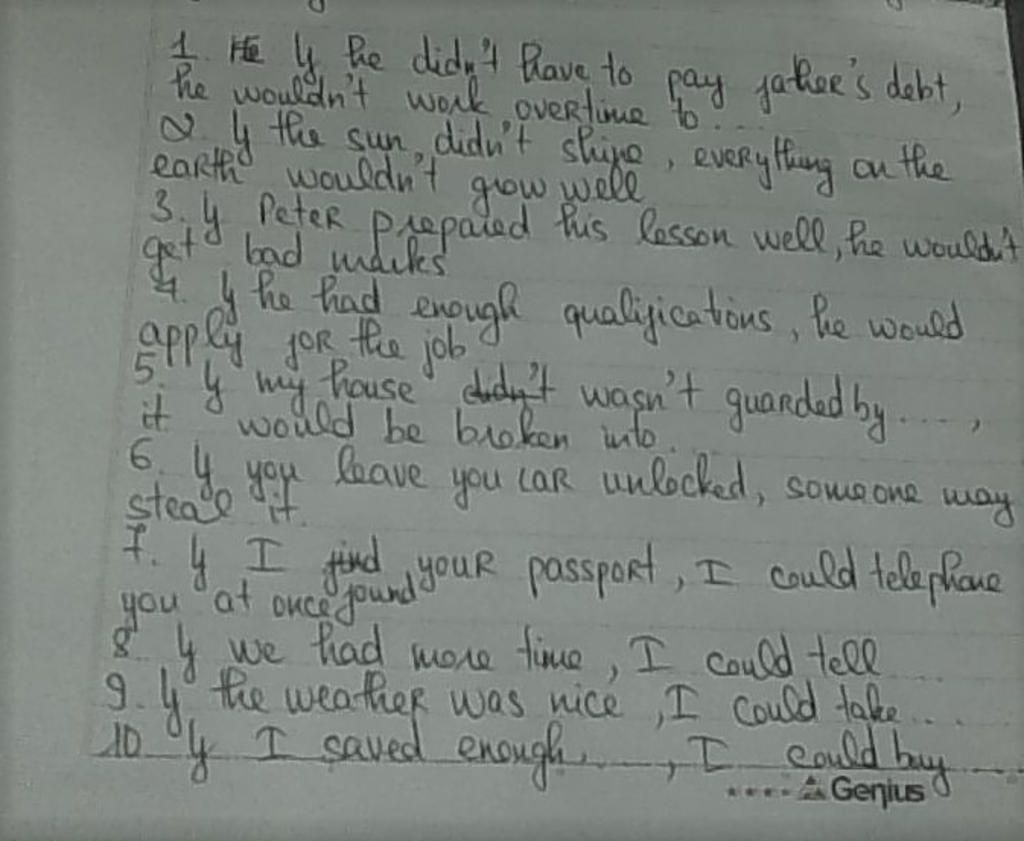 1. He If he didn't have to pay father's debt,
he wouldn't work overtime to ....
2. If the sun didn't shine, everything on the
earth wouldn't grow well
3. If Peter prepared his lesson well, he wouldn't
get bad marks
4. If he had enough qualifications, he would
apply for the job
5. If my house didn't wasn't guarded by ....,
it would be broken into.
6. If you leave you car unlocked, someone may
steal it.
7. If I find your passport, I could telephone
you at once found
8 If we had more time, I could tell ....
9. If the weather was nice, I could take ....
10 If I saved enough ...., I could buy ....
Genius